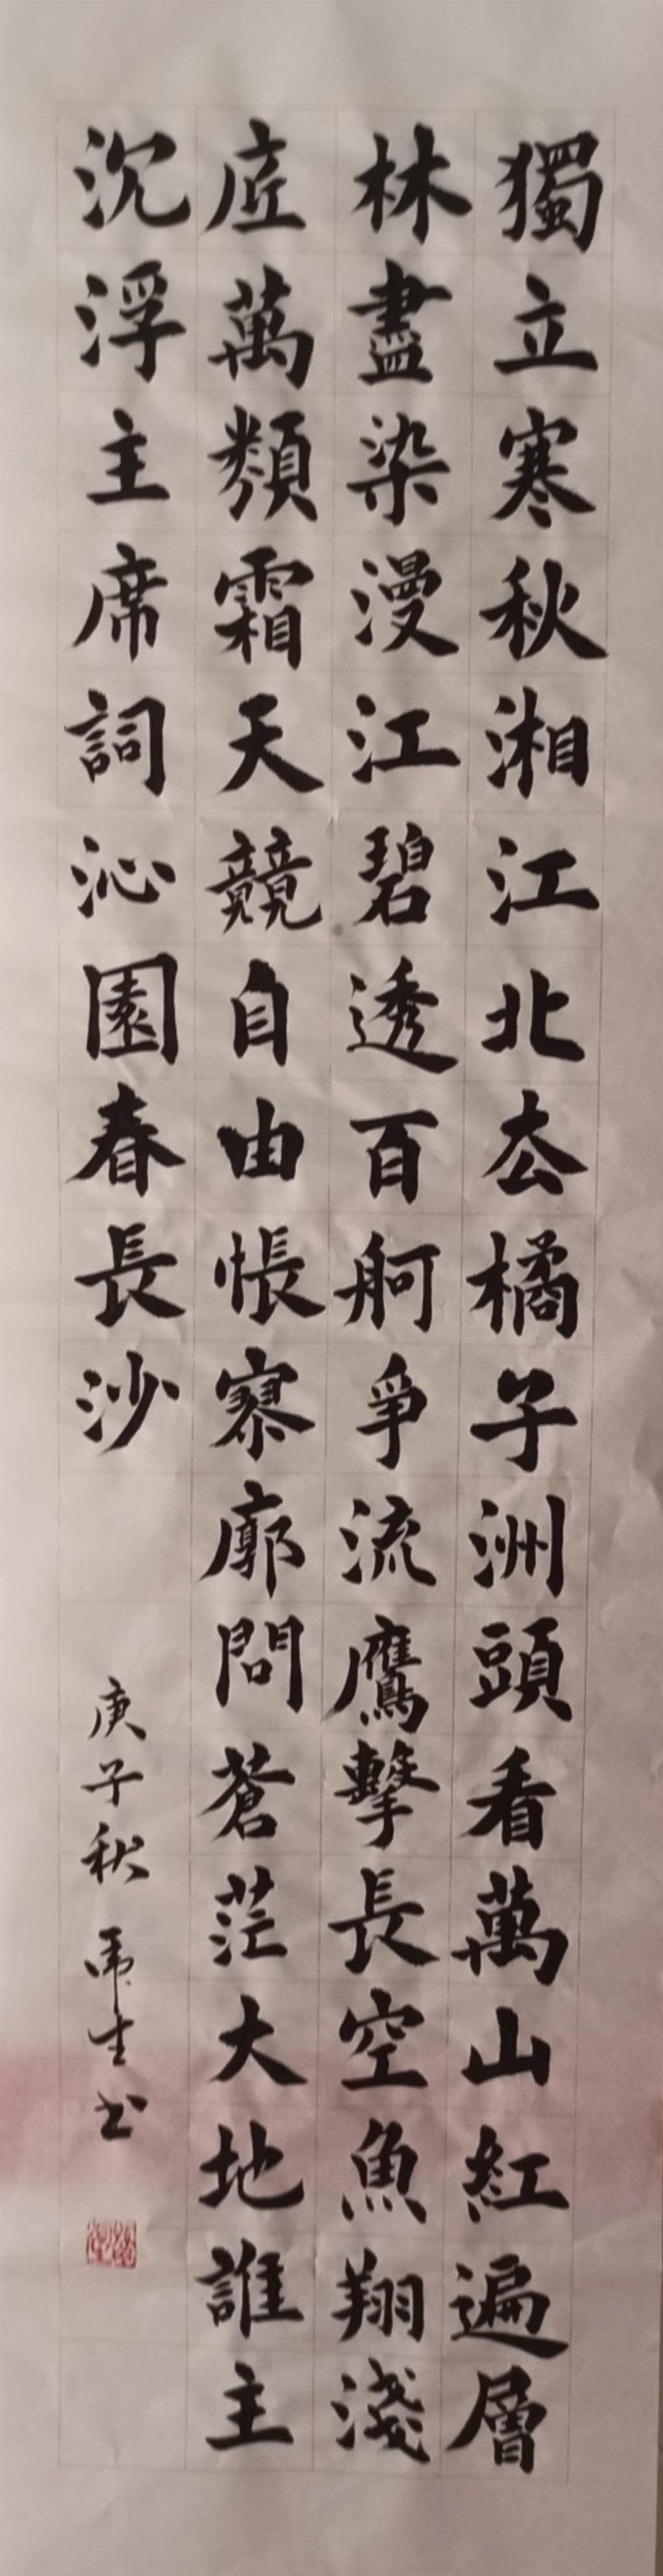 獨立寒秋湘江北去橘子洲頭看萬山紅遍層
林盡染漫江碧透百舸爭流鷹擊長空魚翔淺
底萬類霜天競自由悵寥廓問蒼茫大地誰主
沉浮主席詞沁園春長沙
庚子秋 生书